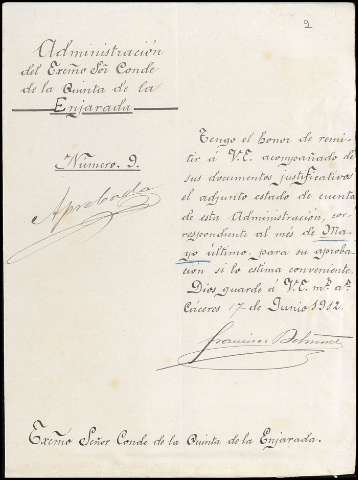 9
Administración
del Excmo Sór Conde
de la Quinta de la
Enjarada
Número 9.
Aprobado
Tengo el honor de remi-
tir á V.E. acompañado de
sus documentos justificativos
el adjunto estado de cuenta
de esta Administración, cor-
respondiente al més de Ma-
yo último, para su aproba-
ción si lo estima conveniente.
Dios guarde á V.E. ms. as.
Cáceres 17 de Junio 1912.
Francisco
Excmo Señor Conde de la Quinta de la Enjarada.